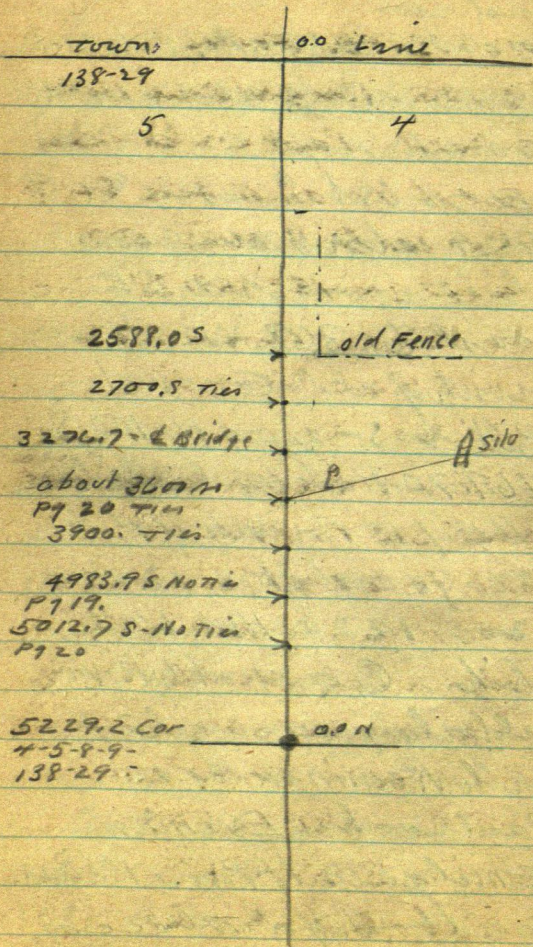 Town. 0.0 Line
138-29
5 4
2588.0 S
old Fence
2700.S Ties
3276.7 - ℄ Bridge
Silo
about 3600
P
Pg 20 Ties
3900. Ties
4983.9 S No Ties
Pg 19.
5012.7 S - No Ties
Pg 20
5229.2 Cor 0.0 N
4-5-8-9-
138-29-